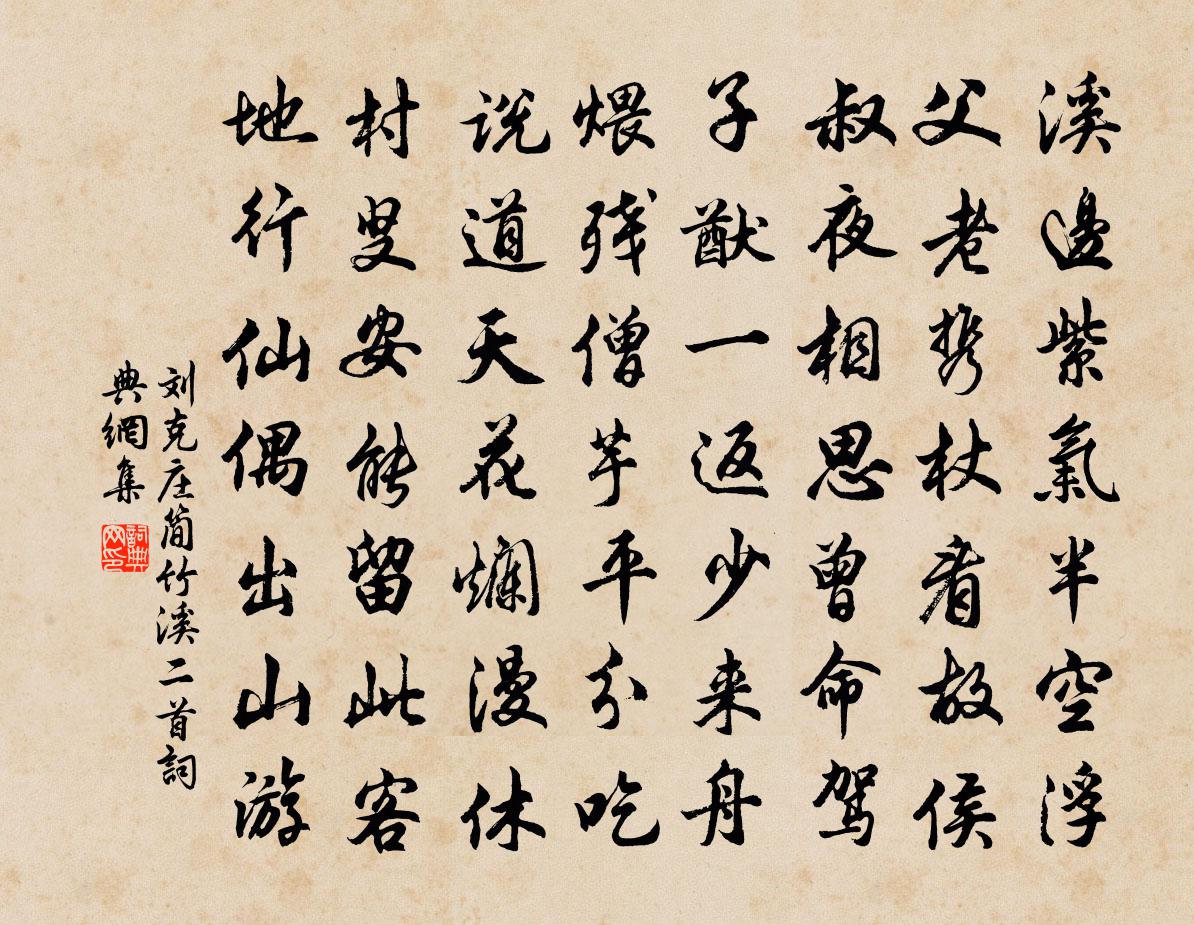 溪邊紫氣半空浮
父老携杖看故侯
叔夜相思曾命驾
子猷一返少来舟
煨残僧芋平分吃
说道天花爛漫休
村叟安能留此客
地行仙偶出山游
刘克庄简竹溪二首詞
典網集
詞典网印